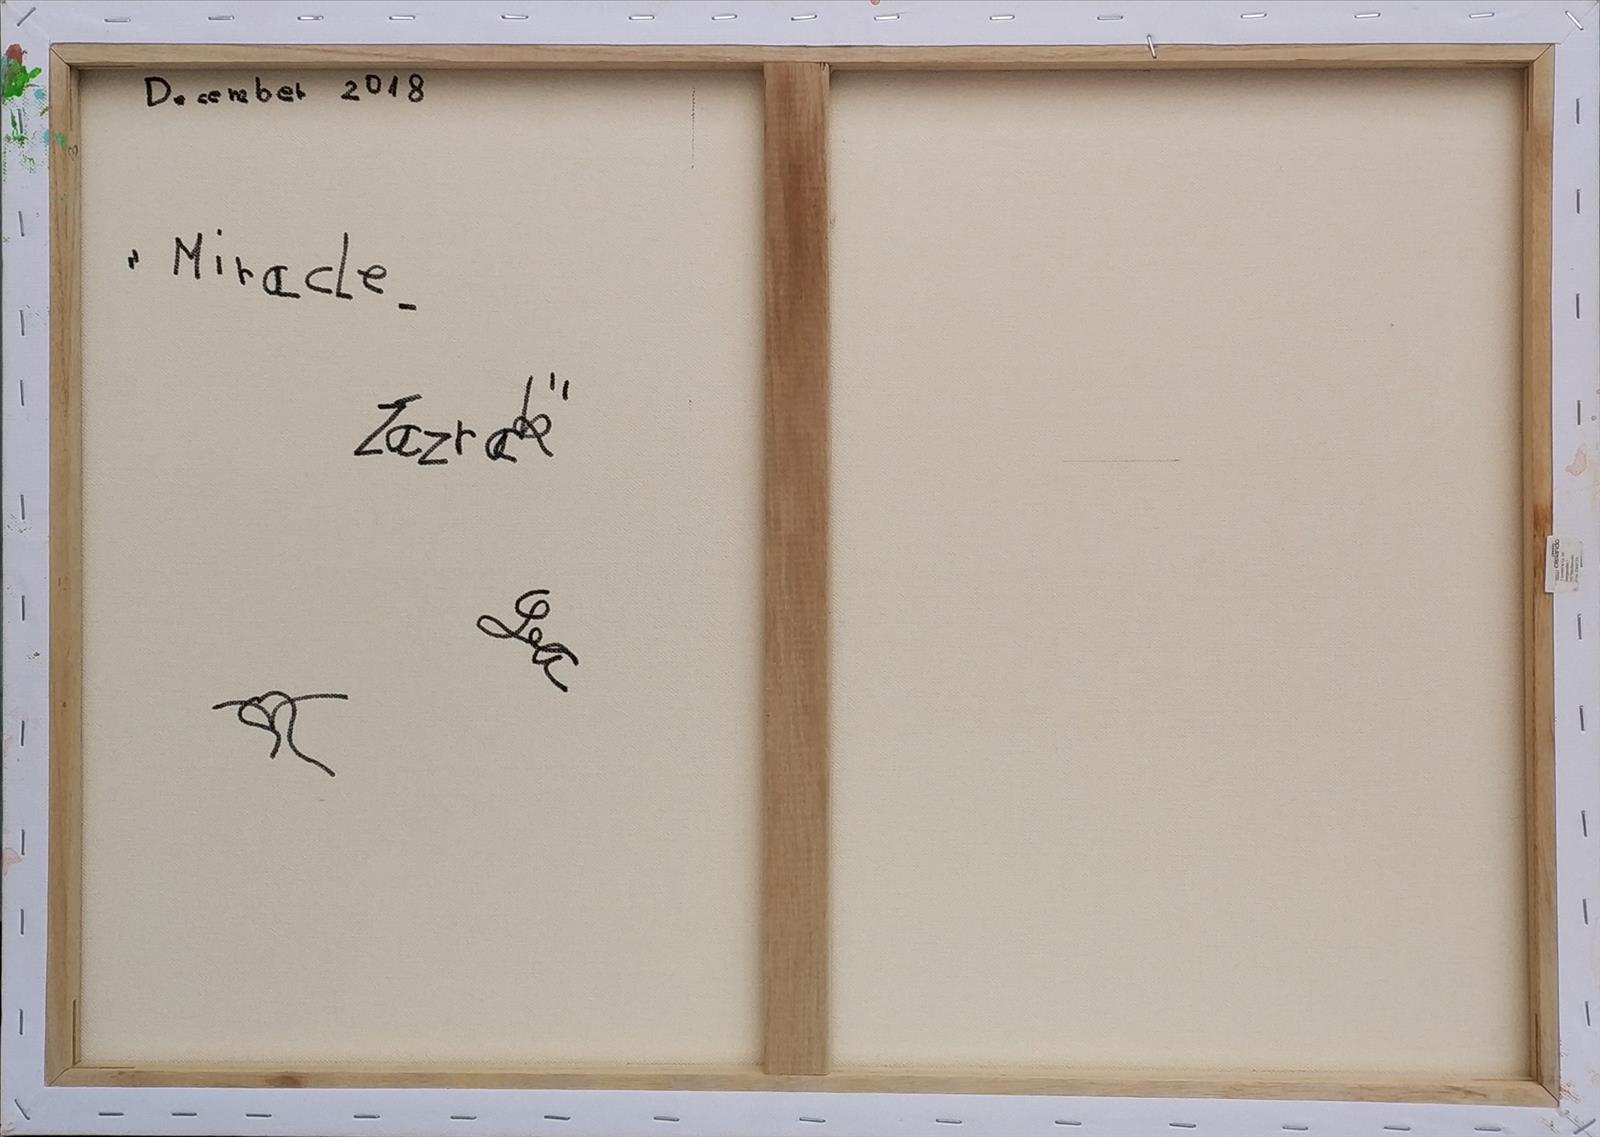 December 2018
„Miracle_
Zazrak"
Lea